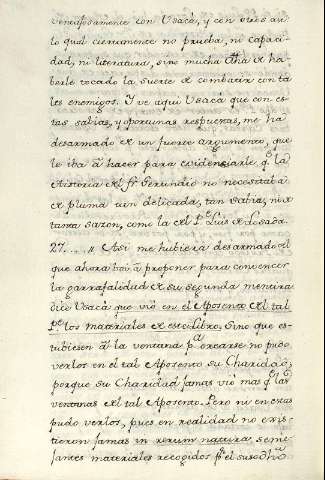 ventajosamente con Usacá, y con otros an
lo qual ciertamente no prueba, ni capaci-
dad, ni literatura, sino mucha dha de ha-
berle tocado la suerte de combatir con ta
les enemigos. Y ve aqui Usacá que con es-
tas sabias, y oportunas respuestas, me ha
desarmado de un fuerte argumento, que
le iba á hacer para evidenciarle q.e la
Historia del fr. Gerundio no necesitaba
de pluma tan delicada, tan sabia, ni de
tanta sazon, como la del P.e Luis de Losada.
27.... Asi me hubiera desarmado del
que ahora boi á proponer para convencer
la garrafalidad de su segunda mentira
dice Usacá que vió en el Aposento del tal
P.e los materiales de este Libro. Sino que es-
tubiesen á la ventana p.a orearse no pudo
verlos en el tal Aposento su Charidad;
porque su Charidad jamas vió mas q.e las
ventanas del tal Aposento. Pero ni en estas
pudo verlos, pues en realidad no exis-
tieron jamas in rerum natura, seme-
jantes materiales recogidos p.r el susodho